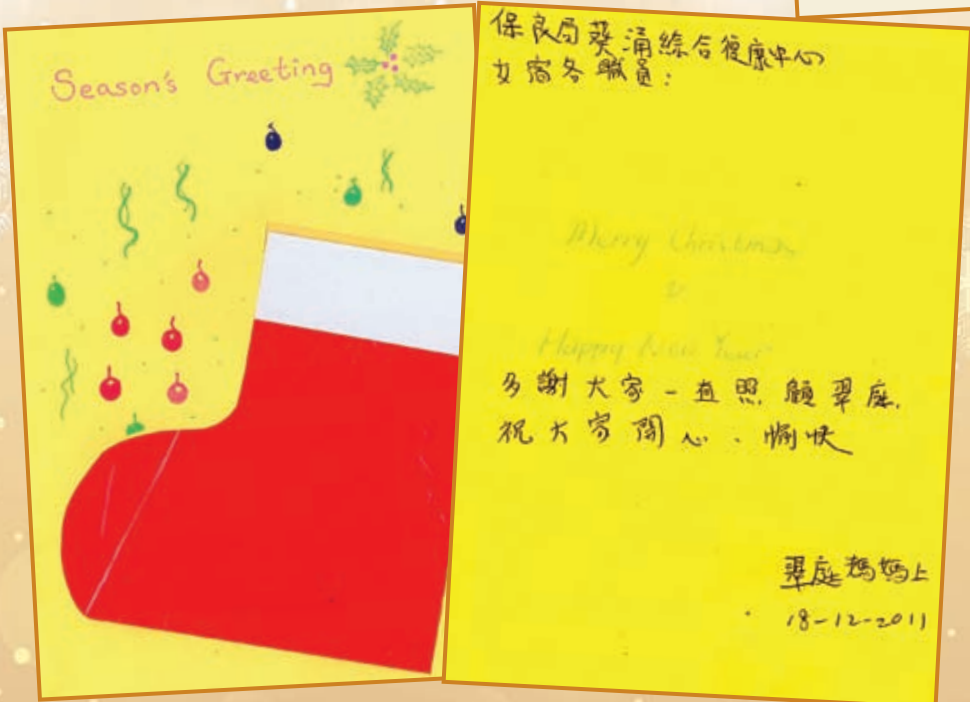 Season's Greeting
保良局葵涌綜合復康中心
女宿各職員:
Merry Christmas
&
Happy New Year
多謝大家一直照顧翠庭.
祝大家開心、愉快
翠庭媽媽上
18-12-2011